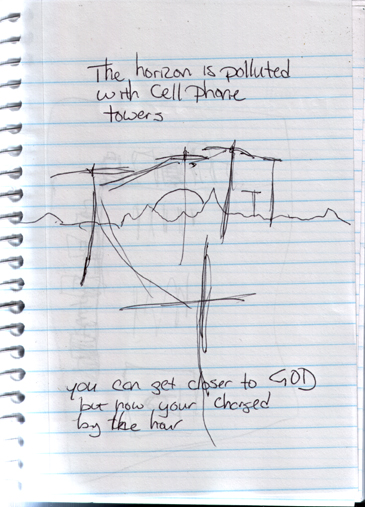 The horizon is polluted
with Cell phone
towers
you can get closer to GOD
but now your charged
by the hour